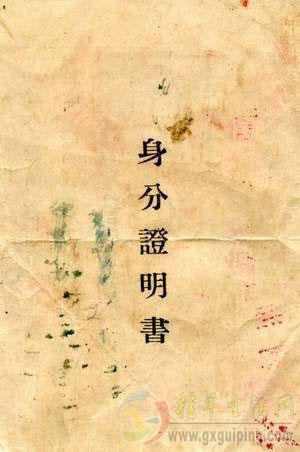 身分證明書
桂平生活网
www.gxguiping.com